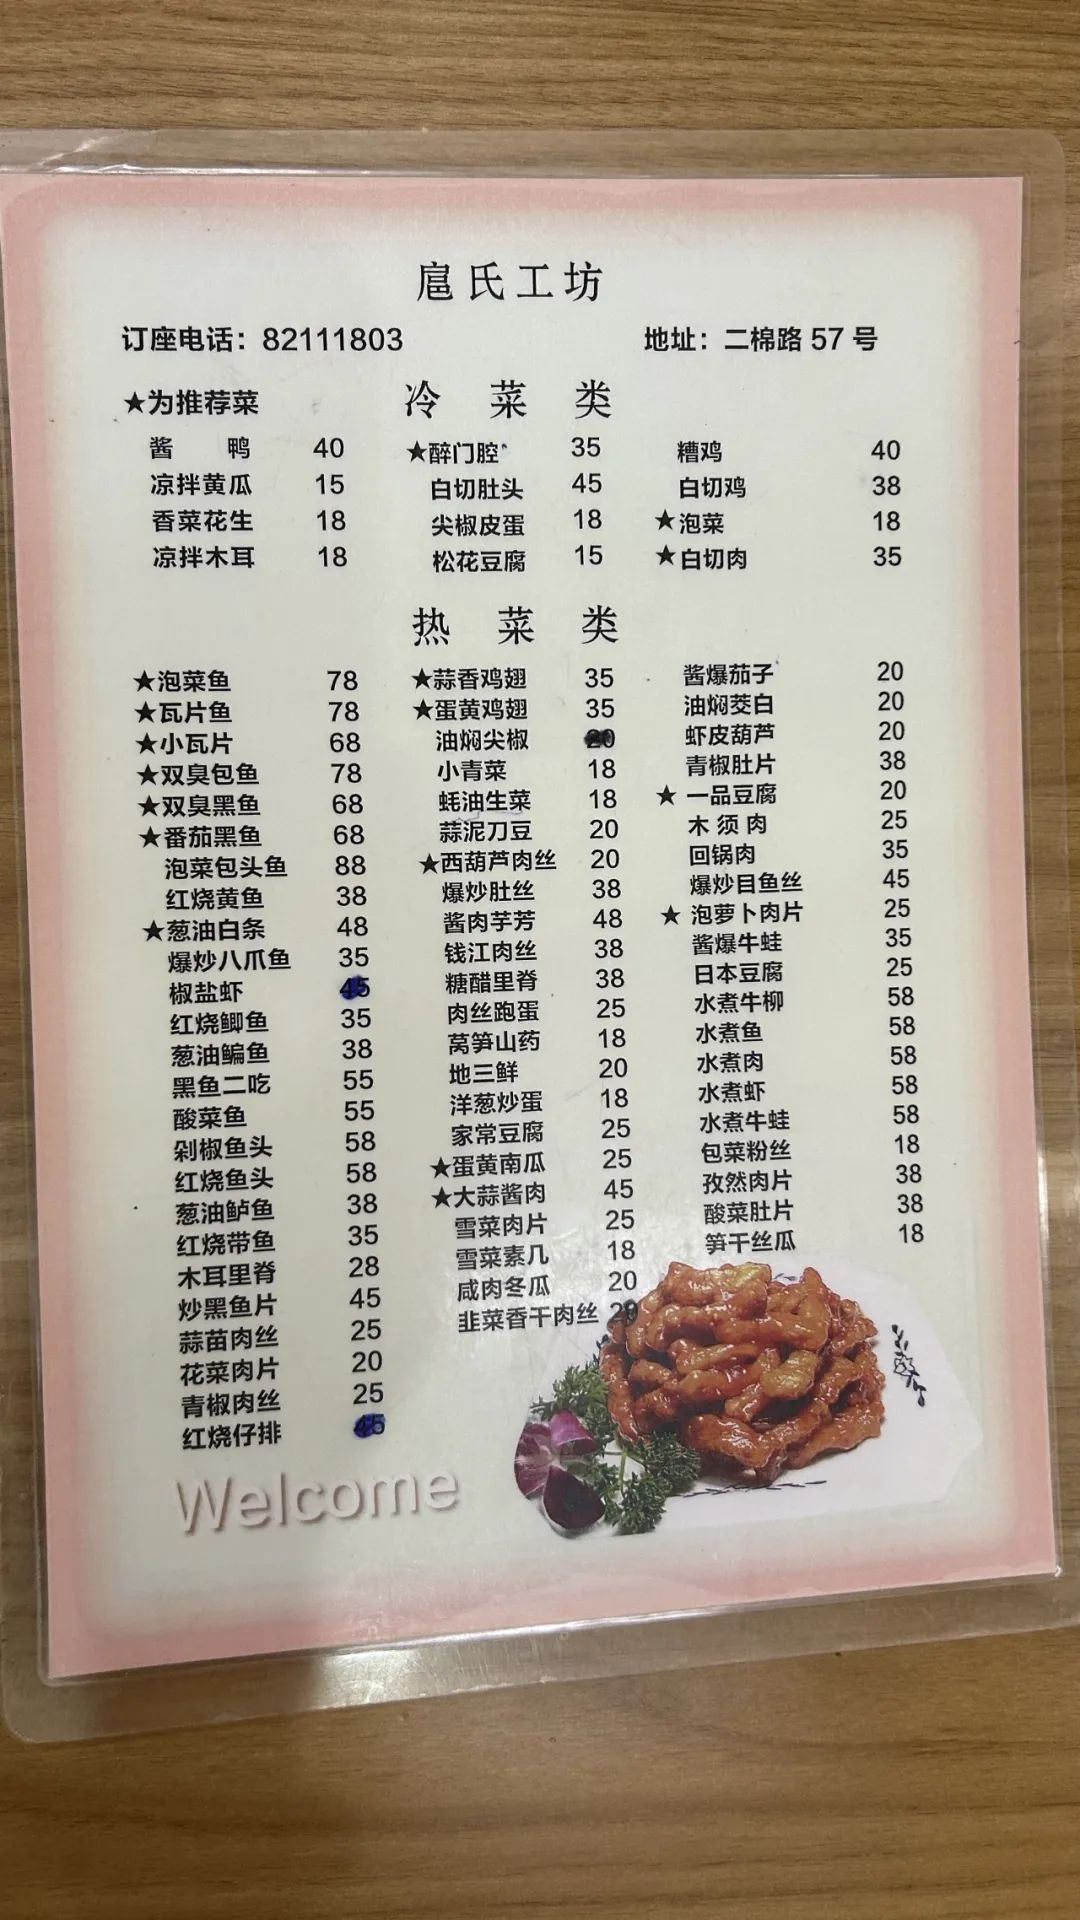 扈氏工坊
订座电话：82111803
地址：二棉路 57 号
★为推荐菜
冷 菜 类
酱 鸭 40
凉拌黄瓜 15
香菜花生 18
凉拌木耳 18
★醉门腔 35
白切肚头 45
尖椒皮蛋 18
松花豆腐 15
糟鸡 40
白切鸡 38
★泡菜 18
★白切肉 35
热 菜 类
★泡菜鱼 78
★瓦片鱼 78
★小瓦片 68
★双臭包鱼 78
★双臭黑鱼 68
★番茄黑鱼 68
泡菜包头鱼 88
红烧黄鱼 38
★葱油白条 48
爆炒八爪鱼 35
椒盐虾 45
红烧鲫鱼 35
葱油鳊鱼 38
黑鱼二吃 55
酸菜鱼 55
剁椒鱼头 58
红烧鱼头 58
葱油鲈鱼 38
红烧带鱼 35
木耳里脊 28
炒黑鱼片 45
蒜苗肉丝 25
花菜肉片 20
青椒肉丝 25
红烧仔排 45
★蒜香鸡翅 35
★蛋黄鸡翅 35
油焖尖椒 20
小青菜 18
蚝油生菜 18
蒜泥刀豆 20
★西葫芦肉丝 20
爆炒肚丝 38
酱肉芋艿 48
钱江肉丝 38
糖醋里脊 38
肉丝跑蛋 25
莴笋山药 18
地三鲜 20
洋葱炒蛋 18
家常豆腐 25
★蛋黄南瓜 25
★大蒜酱肉 45
雪菜肉片 25
雪菜素几 18
咸肉冬瓜 20
韭菜香干肉丝
酱爆茄子 20
油焖茭白 20
虾皮葫芦 20
青椒肚片 38
★ 一品豆腐 20
木 须 肉 25
回锅肉 35
爆炒目鱼丝 45
★ 泡萝卜肉片 25
酱爆牛蛙 35
日本豆腐 25
水煮牛柳 58
水煮鱼 58
水煮肉 58
水煮虾 58
水煮牛蛙 58
包菜粉丝 18
孜然肉片 38
酸菜肚片 38
笋干丝瓜 18
Welcome